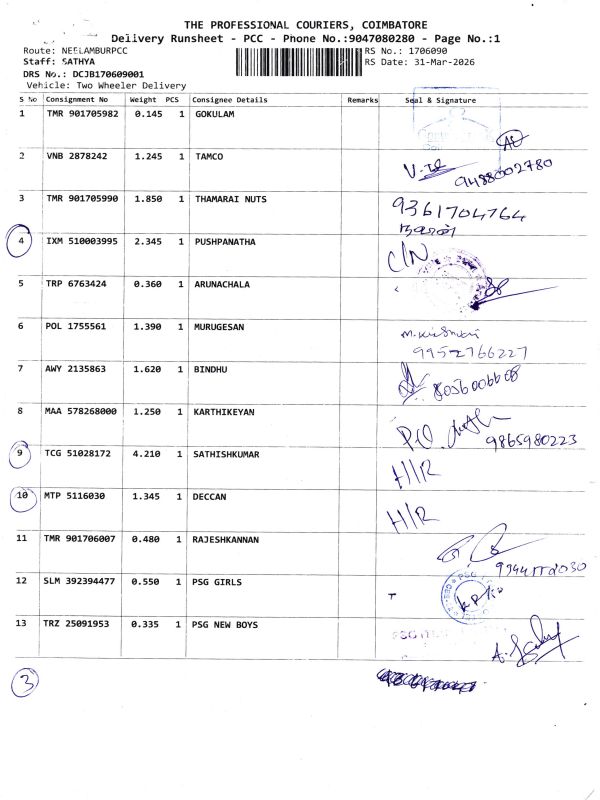 THE PROFESSIONAL COURIERS, COIMBATORE
Delivery Runsheet - PCC - Phone No.:9047080280 - Page No.:1
Route: NEELAMBURPCC RS No.: 1706090
Staff: SATHYA RS Date: 31-Mar-2026
DRS No.: DCJB170609001
Vehicle: Two Wheeler Delivery
S No Consignment No Weight PCS Consignee Details Remarks Seal & Signature
1 TMR 901705982 0.145 1 GOKULAM
2 VNB 2878242 1.245 1 TAMCO 9488002780
3 TMR 901705990 1.850 1 THAMARAI NUTS 9361704764
4 IXM 510003995 2.345 1 PUSHPANATHA C/N
5 TRP 6763424 0.360 1 ARUNACHALA
6 POL 1755561 1.390 1 MURUGESAN 9952766227
7 AWY 2135863 1.620 1 BINDHU 8056006608
8 MAA 578268000 1.250 1 KARTHIKEYAN 9865980223
9 TCG 51028172 4.210 1 SATHISHKUMAR H/R
10 MTP 5116030 1.345 1 DECCAN H/R
11 TMR 901706007 0.480 1 RAJESHKANNAN
12 SLM 392394477 0.550 1 PSG GIRLS
13 TRZ 25091953 0.335 1 PSG NEW BOYS
3